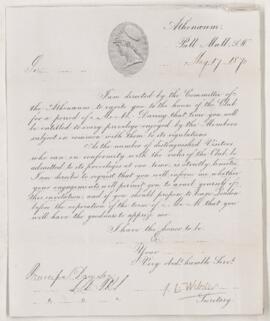 Athenaeum
Pall Mall. S.W.
Aug. 17. 1870
I am directed by the Committee of
the Athenaeum to invite you to the honor of the Club
for a period of a Month. During that time you will
be entitled to every privilege enjoyed by the Members
subject in common with them to its regulations
As the number of distinguished Visitors
who can in conformity with the rules of the Club be
admitted to its privileges at one time, is strictly limited
I am desired to request that you will inform me whether
your engagements will permit you to avail yourself of
this invitation, and if you should propose to leave London
before the expiration of the term of a Month that you
will have the goodness to apprize me
I have the honor to be
Your
Very Obdt. humble Servt.
Principal Dawson
Secretary